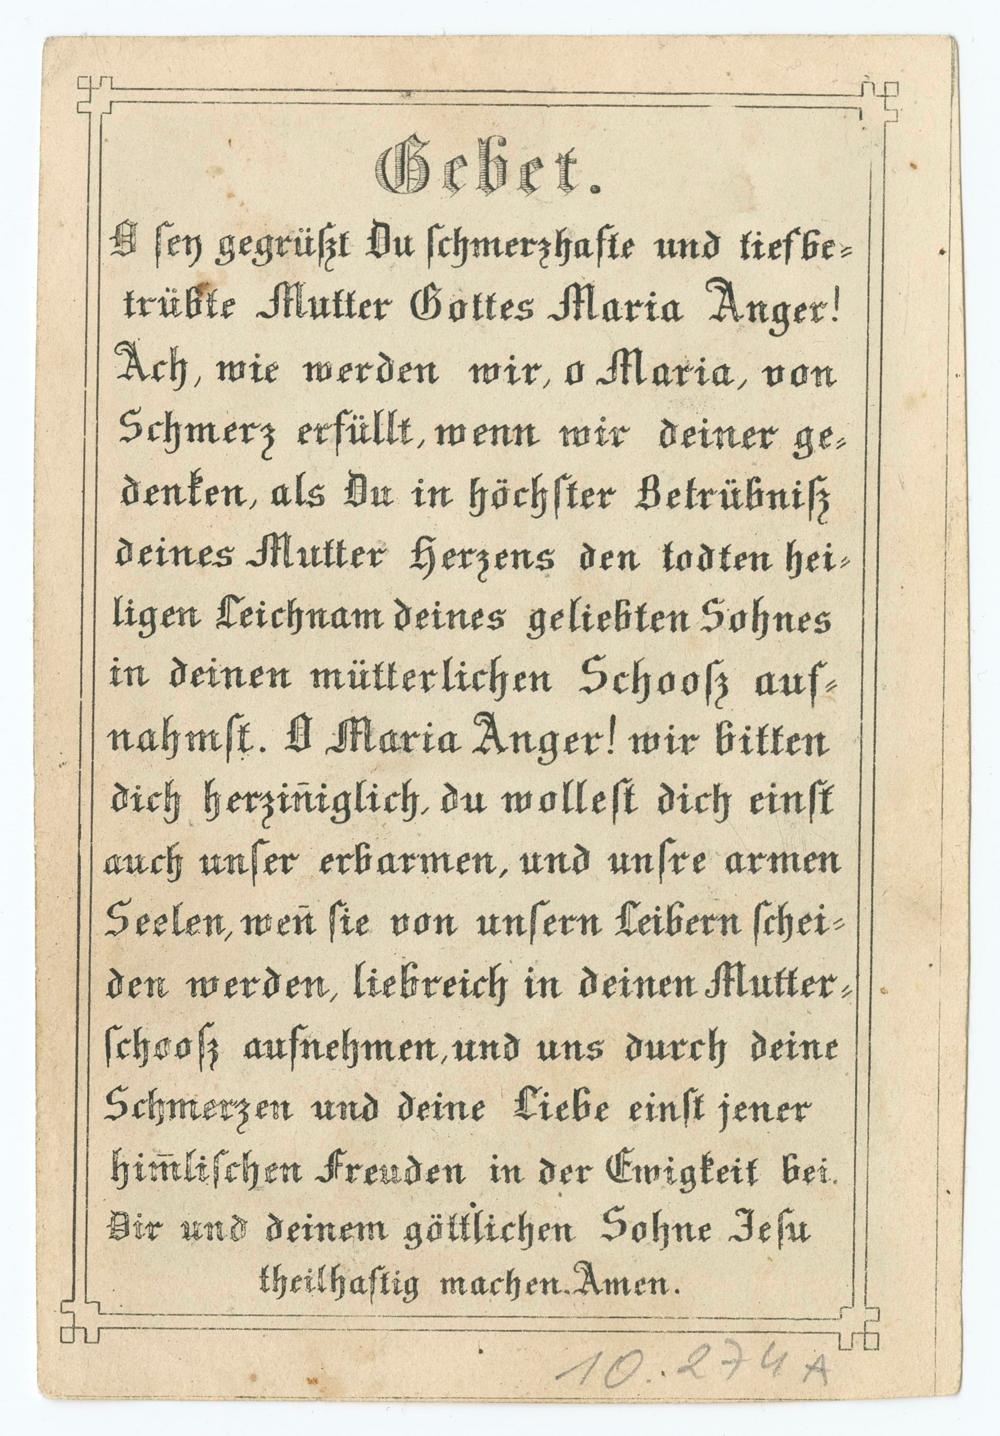 Gebet.
O sey gegrüßt Du schmerzhafte und tiefbe=
trübte Mutter Gottes Maria Anger!
Ach, wie werden wir, o Maria, von
Schmerz erfüllt, wenn wir deiner ge=
denken, als Du in höchster Betrübniß
deines Mutter Herzens den todten hei=
ligen Leichnam deines geliebten Sohnes
in deinen mütterlichen Schooß auf=
nahmst. O Maria Anger! wir bitten
dich herzin̄iglich, du wollest dich einst
auch unser erbarmen, und unsre armen
Seelen, wen̄ sie von unsern Leibern schei=
den werden, liebreich in deinen Mutter=
schooß aufnehmen, und uns durch deine
Schmerzen und deine Liebe einst jener
him̄lischen Freuden in der Ewigkeit bei.
Dir und deinem göttlichen Sohne Jesu
theilhaftig machen. Amen.
10. 274 A